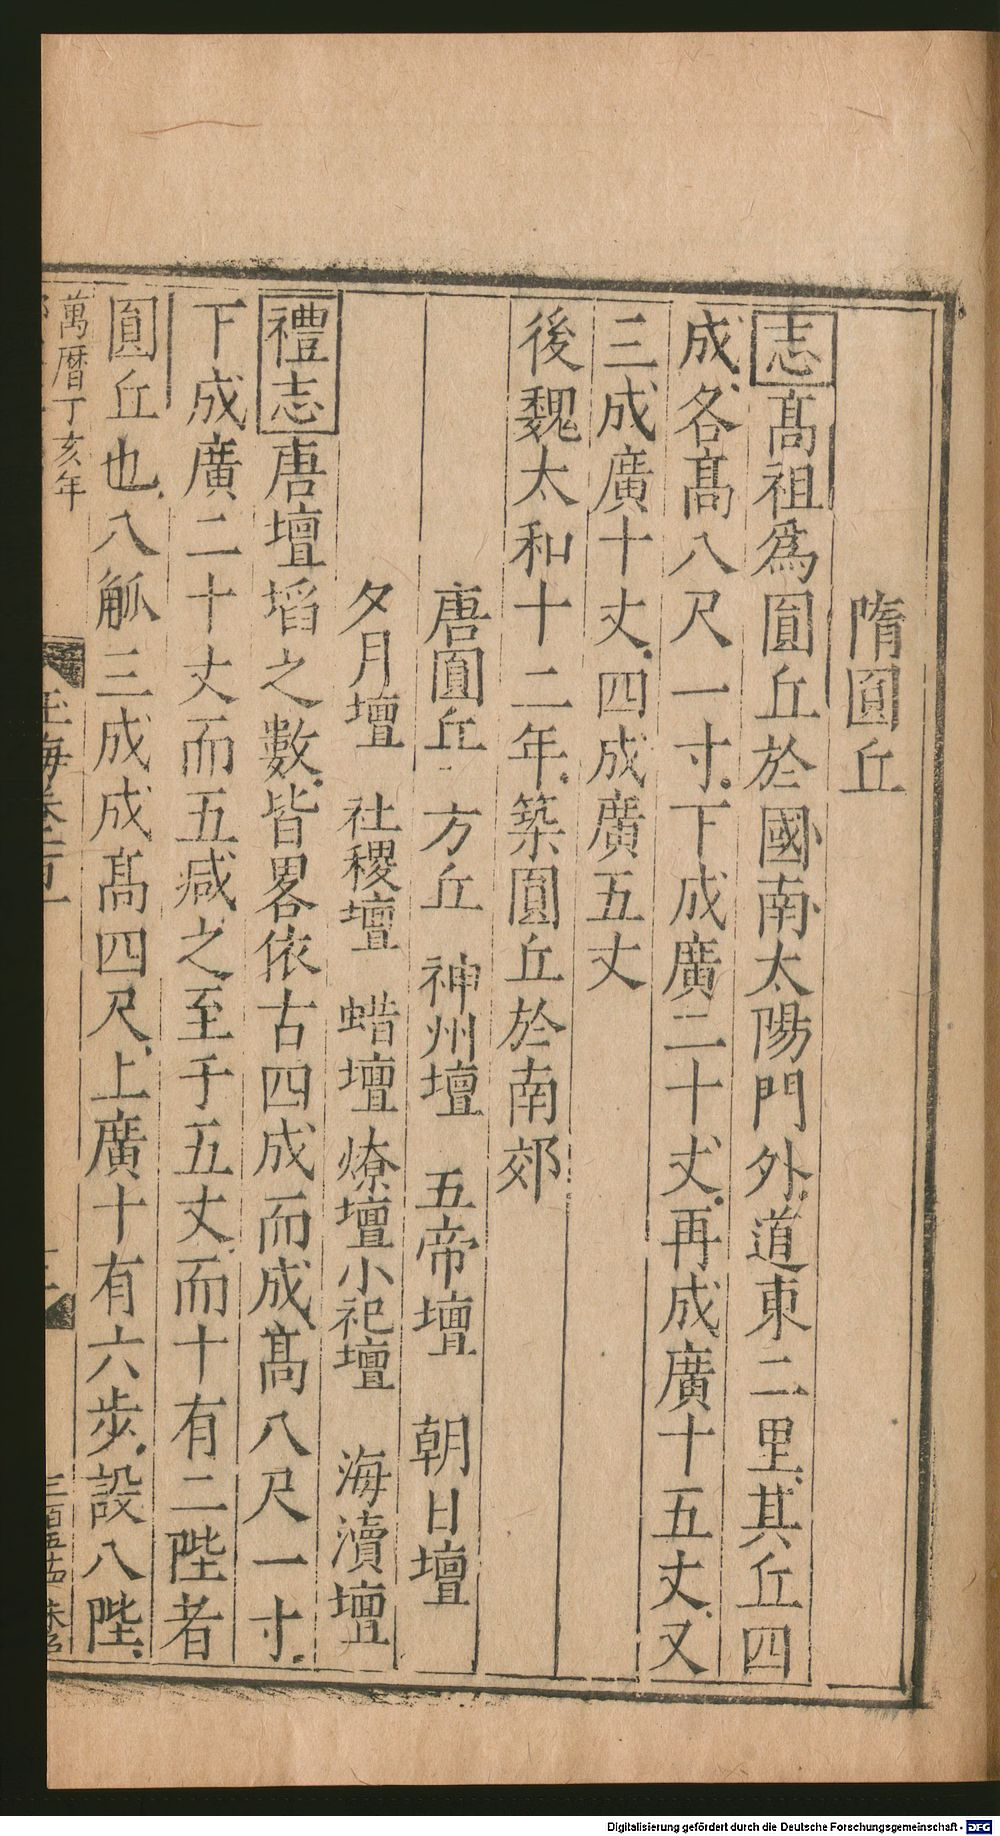 隋圓丘
志髙祖爲圓丘於國南太陽門外道東二里其丘四
成各髙八尺一寸下成廣二十丈再成廣十五丈又
三成廣十丈四成廣五丈
後魏太和十二年築圓丘於南郊
唐圓丘 方丘 神州壇 五帝壇 朝日壇
夕月壇 社稷壇 蜡壇 燎壇 小祀壇 海瀆壇
禮志唐壇壔之數皆畧依古四成而成髙八尺一寸
下成廣二十丈而五減之至于五丈而十有二陛者
圓丘也八觚三成成髙四尺上廣十有六步設八陛
萬曆丁亥年
玉海卷百一
Digitalisierung gefördert durch die Deutsche Forschungsgemeinschaft - DFG